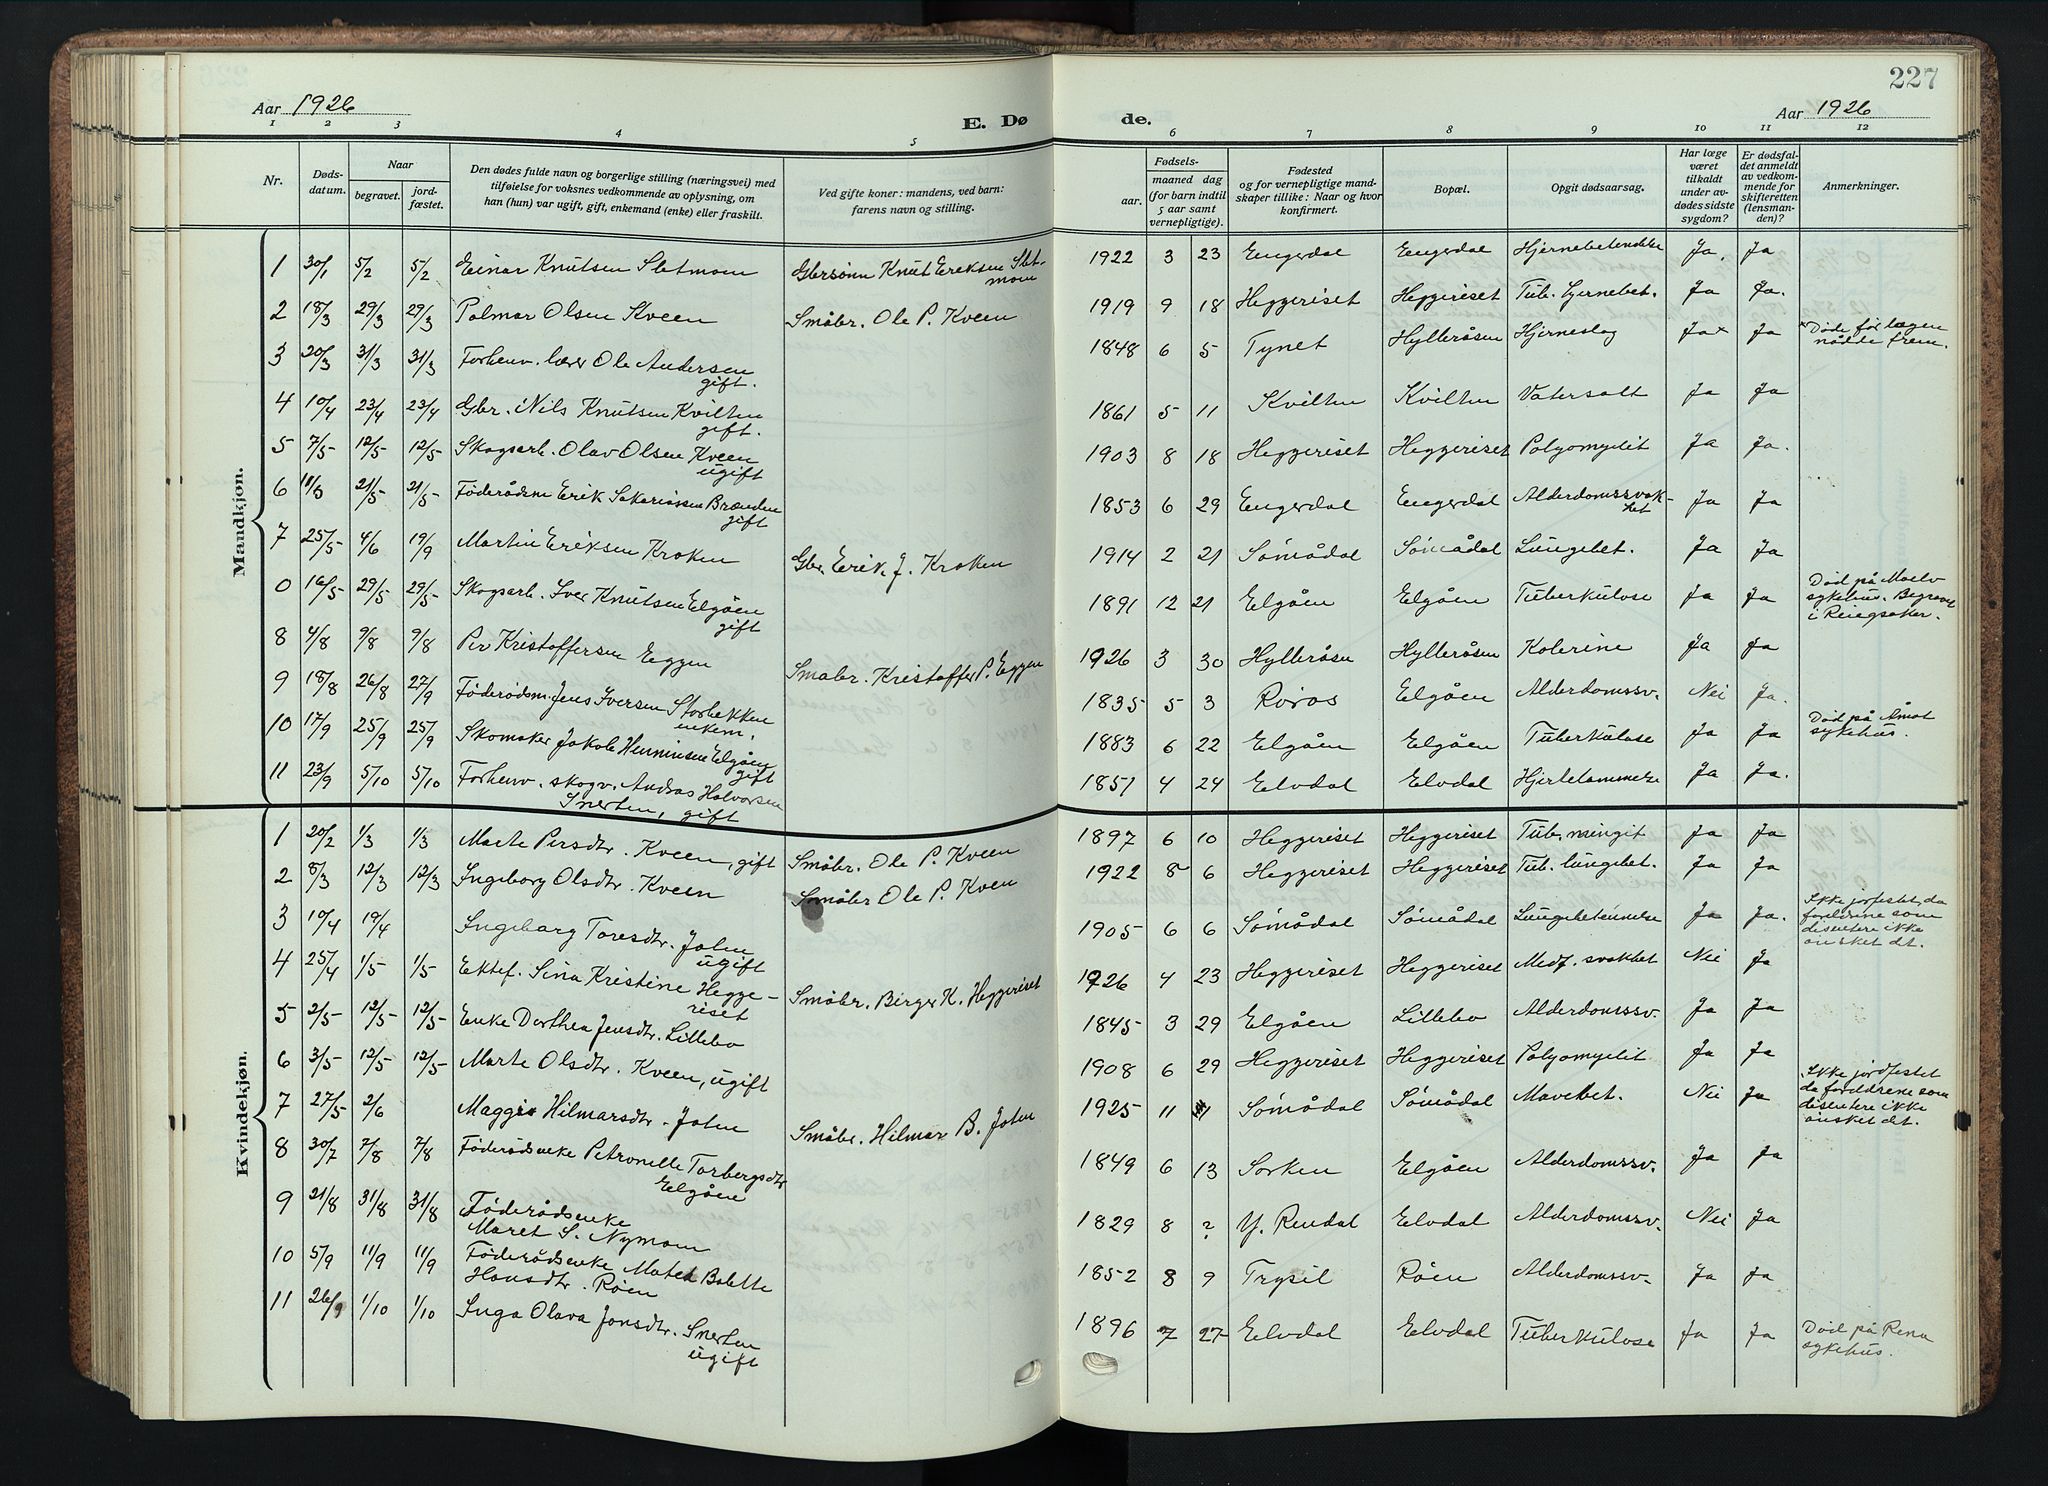 227
Aar 1926
E. Dø
de.
Aar 1926
1 2 3 4 5 6 7 8 9 10 11 12
Nr.
Døds-
datum.
Naar
begravet.
jord-
fæstet.
Den dødes fulde navn og borgerlige stilling (næringsvei) med
tilføielse for voksnes vedkommende av oplysning, om
han (hun) var ugift, gift, enkemand (enke) eller fraskilt.
Ved gifte koner: mandens, ved barn:
farens navn og stilling.
Fødsels-
aar.
maaned dag
(for barn indtil
5 aar samt
vernepligtige).
Fødested
og for vernepligtige mand-
skaper tillike: Naar og hvor
konfirmert.
Bopæl.
Opgit dødsaarsag.
Har læge
været
tilkaldt
under av-
dødes sidste
sygdom?
Er dødsfal-
det anmeldt
av vedkom-
mende for
skifteretten
(lensman-
den)?
Anmerkninger.
Mandkjøn.
1 30/1 5/2 5/2 Einar Knutsen Sletmoen Gbrsønn Knut Eriksen Slet-
moen 1922 3 23 Engerdal Engerdal Hjernebetendelse Ja. Ja
2 18/3 29/3 29/3 Palmar Olsen Kveen Småbr. Ole P. Kveen 1919 9 18 Heggeriset Heggeriset Tub. hjernebet. Ja Ja.
3 20/3 31/3 31/3 Forhenv. lærer Ole Andersen
gift. 1848 6 5 Tynet Hylleråsen Hjerneslag Ja× Ja × Døde før lægen
nådde frem.
4 10/4 23/4 23/4 Gbr. Nils Knutsen Kvilten
gift. 1861 5 11 Kvilten Kvilten Vatersalt Ja Ja
5 7/5 12/5 12/5 Skogsarb. Olav Olsen Kveen
ugift 1903 8 18 Heggeriset Heggeriset Polyomyelit Ja Ja.
6 11/5 21/5 21/5 Føderådsm Erik Sakariassen Brænden
gift 1853 6 29 Engerdal Engerdal Alderdomssvak-
het Ja Ja
7 25/5 4/6 19/9 Martin Eriksen Kroken Gbr. Erik J. Kroken 1914 2 21 Sømådal Sømådal Lungebet. Ja Ja
0 16/5 29/5 29/5 Skogsarb. Iver Knutsen Elgåen
gift 1891 12 21 Elgåen Elgåen Tuberkulose Ja Ja Død på Moelv
sykehus. Begravet
i Ringsaker.
8 4/8 9/8 9/8 Per Kristoffersen Eggen Småbr. Kristoffer P. Eggen 1926 3 30 Hylleråsen Hylleråsen Kolerine Ja Ja
9 18/8 26/8 27/9 Føderådsm. Jens Iversen Storbekken
enkem. 1835 5 3 Røros Elgåen Alderdomssv. Nei Ja.
10 17/9 25/9 25/9 Skomaker Jakob Henningsen Elgåen
gift 1883 6 22 Elgåen Elgåen Tuberkulose Ja Ja Død på Åmot
sykehus.
11 23/9 5/10 5/10 Forhenv. skogv. Andras Halvorsen
Snerten, gift 1851 4 24 Elvdal Elvdal Hjertelammelse Ja Ja.
Kvindekjøn.
1 20/2 1/3 1/3 Marte Persdtr. Kveen, gift Småbr. Ole P. Kveen 1897 6 10 Heggeriset Heggeriset Tub. mingit Ja Ja
2 8/3 12/3 12/3 Ingeborg Olsdtr. Kveen Småbr Ole P. Kveen 1922 8 6 Heggeriset Heggeriset Tub. lungebet. Ja Ja
3 10/4 19/4 Ingeborg Toresdtr. Joten
ugift 1905 6 6 Sømådal Sømådal Lungebetennelse Ja Ja. Ikke jorfestet, da
foreldrene som
disentere ikke
ønsket det.
4 25/4 1/5 1/5 Ektef. Sina Kristine Hegge-
riset Småbr. Birger K. Heggeriset 1926 4 23 Heggeriset Heggeriset Medf. svakhet Nei Ja
5 2/5 12/5 12/5 Enke Dorthea Jensdtr. Lillebo 1845 3 29 Elgåen Lillebo Alderdomssv. Ja Ja
6 3/5 12/5 12/5 Marte Olsdtr. Kveen, ugift 1908 6 29 Heggeriset Heggeriset Polyomyelit Ja Ja
7 27/5 2/6 Maggie Hilmarsdtr. Joten Småbr. Hilmar B. Joten 1925 11 1 Sømådal Sømådal Mavebet. Nei Ja Ikke jordfestet
da foreldrene som
disentere ikke
ønsket det.
8 30/7 7/8 7/8 Føderådsenke Petronelle Torbergsdtr
Elgåen 1849 6 13 Sorken Elgåen Alderdomssv. Ja Ja
9 21/8 31/8 31/8 Føderådsenke
Maret S. Nymoen 1829 8 ? Y. Rendal Elvdal Alderdomssv. Nei Ja
10 5/9 11/9 11/9 Føderådsenke Malet Bolette
Hansdtr. Røen 1852 8 9 Trysil Røen Alderdomssv. Ja Ja
11 26/9 1/10 1/10 Inga Olava Jonsdtr. Snerten
ugift 1896 7 27 Elvdal Elvdal Tuberkulose Ja Ja Død på Rena
sykehus.